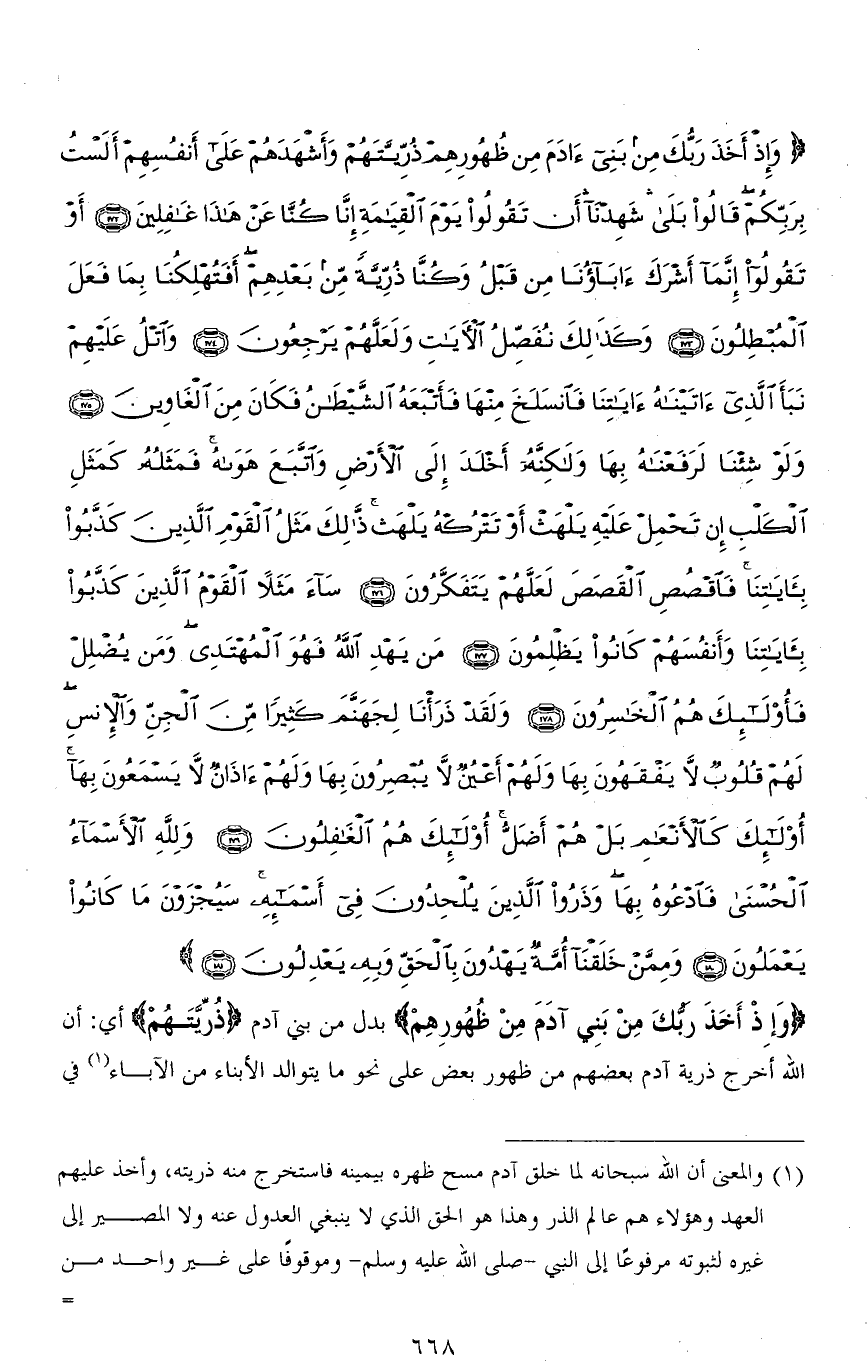 ﴿ وَإِذْ أَخَذَ رَبُّكَ مِنۢ بَنِىٓ ءَادَمَ مِن ظُهُورِهِمْ ذُرِّيَّتَهُمْ وَأَشْهَدَهُمْ عَلَىٰٓ أَنفُسِهِمْ أَلَسْتُ
بِرَبِّكُمْ ۖ قَالُوا۟ بَلَىٰ ۛ شَهِدْنَآ ۛ أَن تَقُولُوا۟ يَوْمَ ٱلْقِيَـٰمَةِ إِنَّا كُنَّا عَنْ هَـٰذَا غَـٰفِلِينَ ﴿١٧٢﴾ أَوْ
تَقُولُوٓا۟ إِنَّمَآ أَشْرَكَ ءَابَآؤُنَا مِن قَبْلُ وَكُنَّا ذُرِّيَّةً مِّنۢ بَعْدِهِمْ ۖ أَفَتُهْلِكُنَا بِمَا فَعَلَ
ٱلْمُبْطِلُونَ ﴿١٧٣﴾ وَكَذَٰلِكَ نُفَصِّلُ ٱلْـَٔايَـٰتِ وَلَعَلَّهُمْ يَرْجِعُونَ ﴿١٧٤﴾ وَٱتْلُ عَلَيْهِمْ
نَبَأَ ٱلَّذِىٓ ءَاتَيْنَـٰهُ ءَايَـٰتِنَا فَٱنسَلَخَ مِنْهَا فَأَتْبَعَهُ ٱلشَّيْطَـٰنُ فَكَانَ مِنَ ٱلْغَاوِينَ ﴿١٧٥﴾
وَلَوْ شِئْنَا لَرَفَعْنَـٰهُ بِهَا وَلَـٰكِنَّهُۥٓ أَخْلَدَ إِلَى ٱلْأَرْضِ وَٱتَّبَعَ هَوَىٰهُ ۚ فَمَثَلُهُۥ كَمَثَلِ
ٱلْكَلْبِ إِن تَحْمِلْ عَلَيْهِ يَلْهَثْ أَوْ تَتْرُكْهُ يَلْهَث ۚ ذَّٰلِكَ مَثَلُ ٱلْقَوْمِ ٱلَّذِينَ كَذَّبُوا۟
بِـَٔايَـٰتِنَا ۚ فَٱقْصُصِ ٱلْقَصَصَ لَعَلَّهُمْ يَتَفَكَّرُونَ ﴿١٧٦﴾ سَآءَ مَثَلًا ٱلْقَوْمُ ٱلَّذِينَ كَذَّبُوا۟
بِـَٔايَـٰتِنَا وَأَنفُسَهُمْ كَانُوا۟ يَظْلِمُونَ ﴿١٧٧﴾ مَن يَهْدِ ٱللَّهُ فَهُوَ ٱلْمُهْتَدِى ۖ وَمَن يُضْلِلْ
فَأُو۟لَـٰٓئِكَ هُمُ ٱلْخَـٰسِرُونَ ﴿١٧٨﴾ وَلَقَدْ ذَرَأْنَا لِجَهَنَّمَ كَثِيرًا مِّنَ ٱلْجِنِّ وَٱلْإِنسِ ۖ
لَهُمْ قُلُوبٌ لَّا يَفْقَهُونَ بِهَا وَلَهُمْ أَعْيُنٌ لَّا يُبْصِرُونَ بِهَا وَلَهُمْ ءَاذَانٌ لَّا يَسْمَعُونَ بِهَآ ۚ
أُو۟لَـٰٓئِكَ كَٱلْأَنْعَـٰمِ بَلْ هُمْ أَضَلُّ ۚ أُو۟لَـٰٓئِكَ هُمُ ٱلْغَـٰفِلُونَ ﴿١٧٩﴾ وَلِلَّهِ ٱلْأَسْمَآءُ
ٱلْحُسْنَىٰ فَٱدْعُوهُ بِهَا ۖ وَذَرُوا۟ ٱلَّذِينَ يُلْحِدُونَ فِىٓ أَسْمَـٰٓئِهِۦ ۚ سَيُجْزَوْنَ مَا كَانُوا۟
يَعْمَلُونَ ﴿١٨٠﴾ وَمِمَّنْ خَلَقْنَآ أُمَّةٌ يَهْدُونَ بِٱلْحَقِّ وَبِهِۦ يَعْدِلُونَ ﴿١٨١﴾ ﴾
﴿وَإِذْ أَخَذَ رَبُّكَ مِنْ بَنِي آدَمَ مِنْ ظُهُورِهِمْ﴾ بدل من بني آدم ﴿ذُرِّيَّتَهُمْ﴾ أي: أن
الله أخرج ذرية آدم بعضهم من ظهور بعض على نحو ما يتوالد الأبناء من الآباء(١) في
(١) والمعنى أن الله سبحانه لما خلق آدم مسح ظهره بيمينه فاستخرج منه ذريته، وأخذ عليهم
العهد وهؤلاء هم عالم الذر وهذا هو الحق الذي لا ينبغي العدول عنه ولا المصير إلى
غيره لثبوته مرفوعًا إلى النبي -صلى الله عليه وسلم- وموقوفًا على غير واحد من
=
٦٦٨